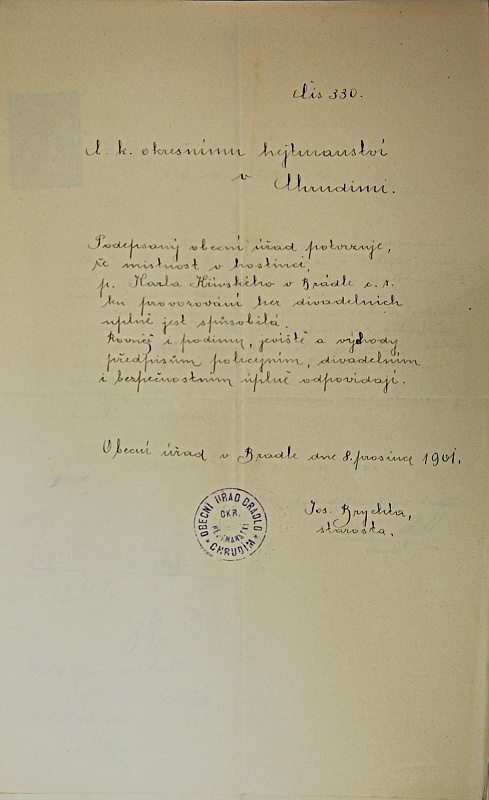 Čís 330.
C. k. okresnímu hejtmanství
v
Chrudimi.
Podepsaný obecní úřad potvrzuje,
že místnost v hostinci,
p. Karla Křivského v Brádle č. 1.
ku provozování her divadelních
uplně jest spůsobilá.
Rovněž i podium, jeviště a východy
předpisům policejním, divadelním
i bezpečnostním úplně odpovídají.
Obecní úřad v Bradle dne 8. prosince 1901.
Jos. Brychta,
starosta.
OBECNÍ ÚŘAD BRADLO
OKR.
HEJTMANSTVÍ
CHRUDIM